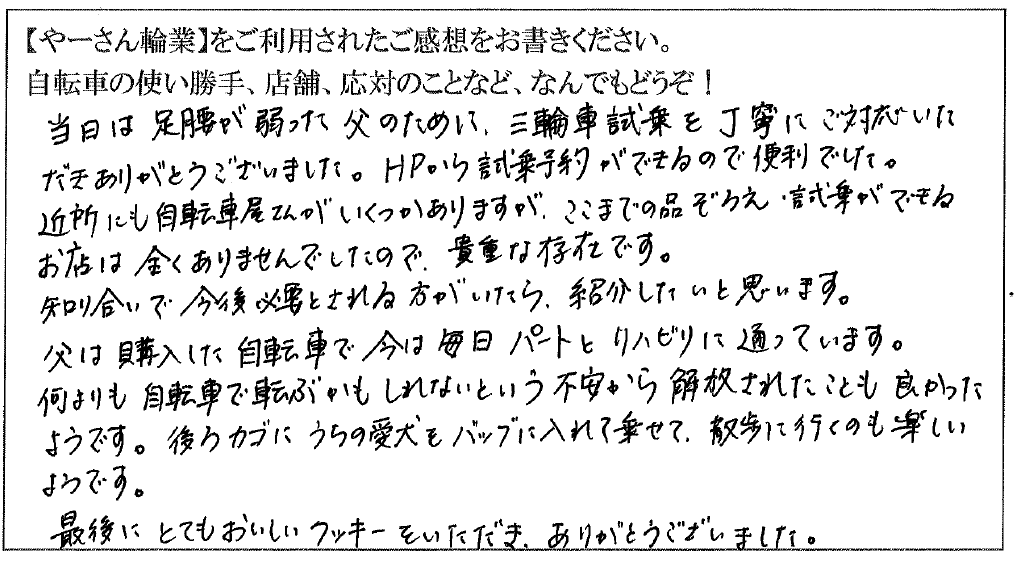 【やーさん輪業】をご利用されたご感想をお書きください。
自転車の使い勝手、店舗、応対のことなど、なんでもどうぞ！
当日は足腰が弱った父のために、三輪車試乗を丁寧にご対応いた
だきありがとうございました。HPから試乗予約ができるので便利でした。
近所にも自転車屋さんがいくつかありますが、ここまでの品ぞろえ・試乗ができる
お店は全くありませんでしたので、貴重な存在です。
知り合いで今後必要とされる方がいたら、紹介したいと思います。
父は購入した自転車で今は毎日パートとリハビリに通っています。
何よりも自転車で転ぶかもしれないという不安から解放されたことも良かった
ようです。後ろカゴにうちの愛犬をバッグに入れて乗せて、散歩に行くのも楽しい
ようです。
最後にとてもおいしいクッキーをいただき、ありがとうございました。